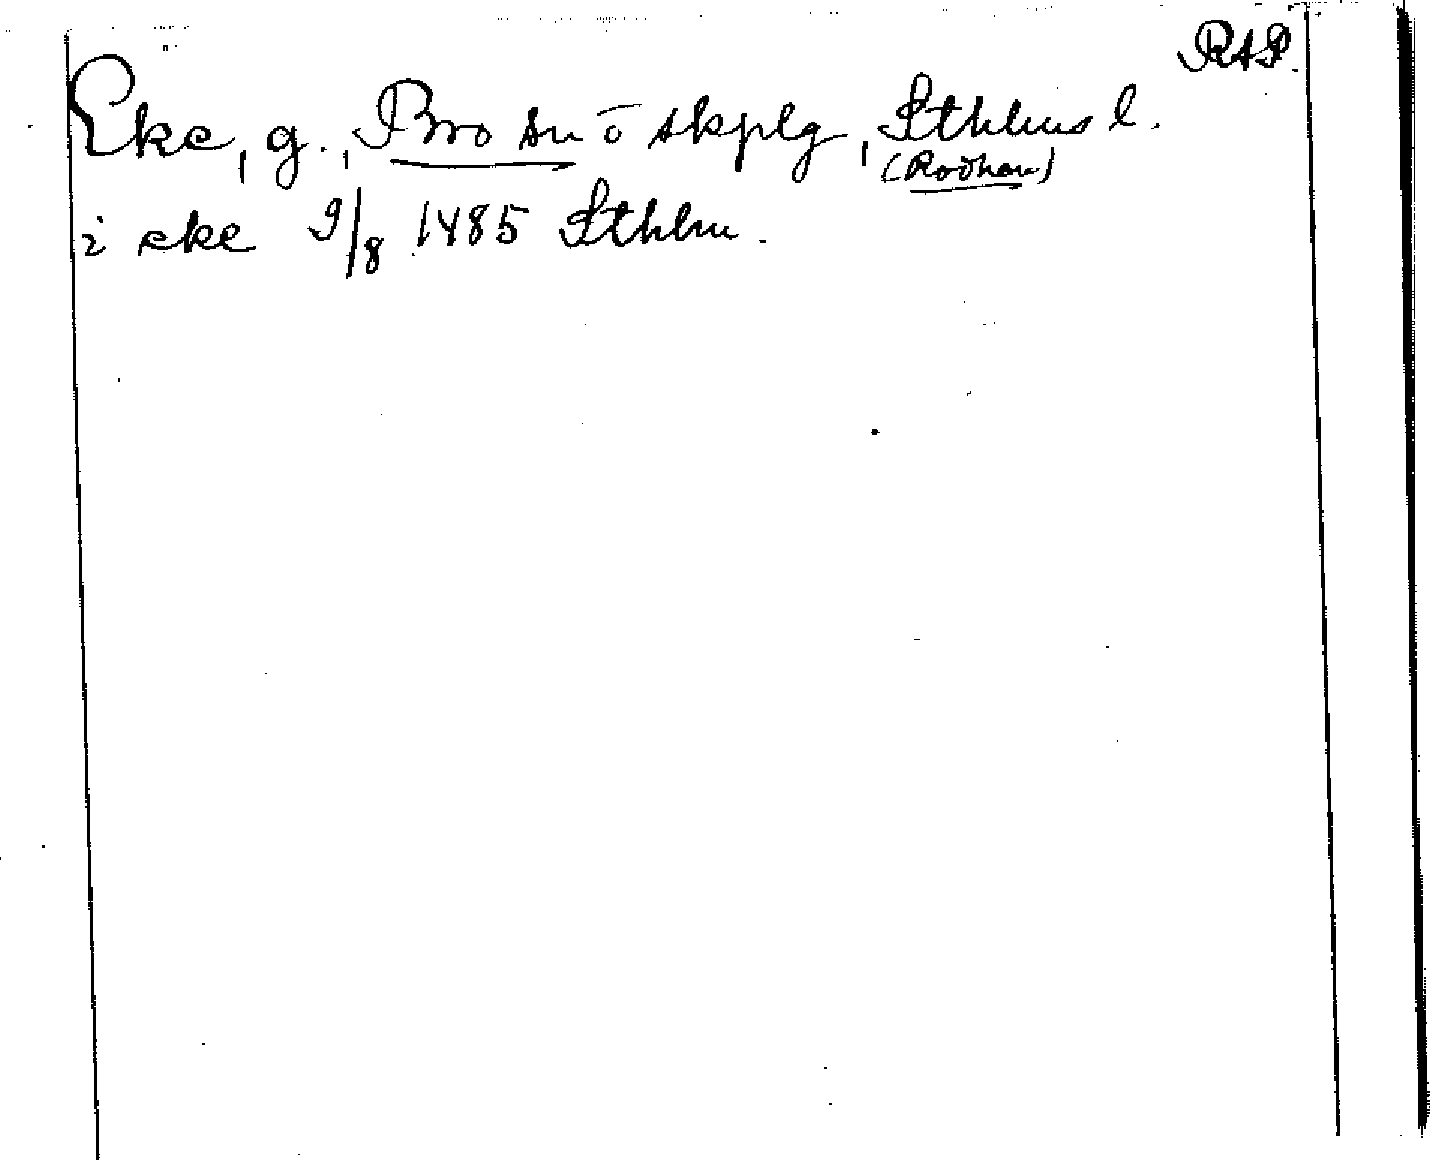 RAP.
Eke, g., Bro sn o skplg, Sthlms l.
(Rodhan)
i eke 9/8 1485 Sthlm.